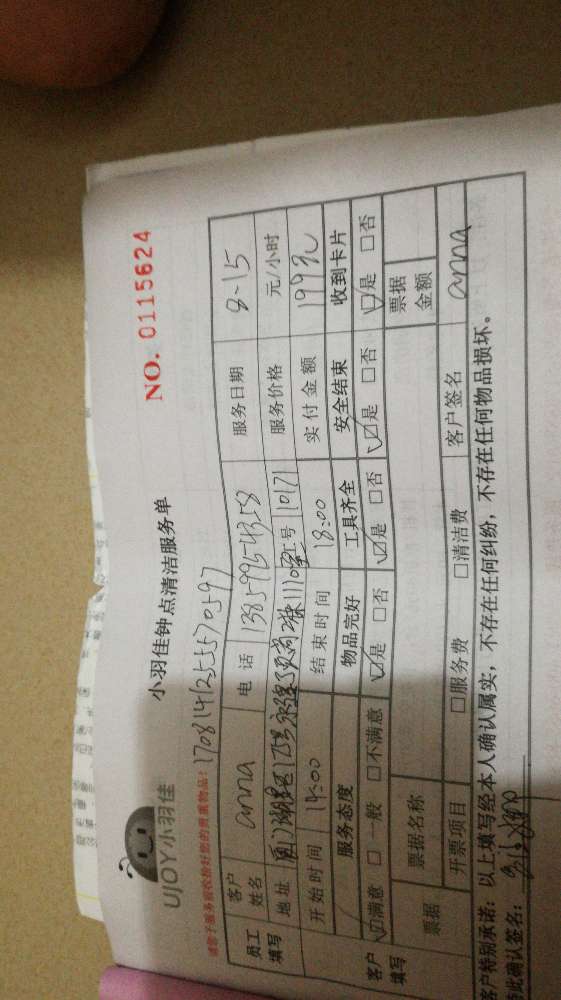 UJOY小羽佳
小羽佳钟点清洁服务单
NO. 0115624
1708141255570597
员工填写
客户姓名 anna 电话 13859954358 服务日期 8-15
地址 服务价格 元/小时
工号 10171
开始时间 14:00 结束时间 18:00 实付金额 199元
客户填写
服务态度 物品完好 工具齐全 安全结束 收到卡片
☑满意 □一般 □不满意 ☑是 □否 ☑是 □否 ☑是 □否 ☑是 □否
票据 票据名称 票据金额
开票项目 □服务费 □清洁费 客户签名 anna
客户特别承诺：以上填写经本人确认属实，不存在任何纠纷，不存在任何物品损坏。
此确认签名：